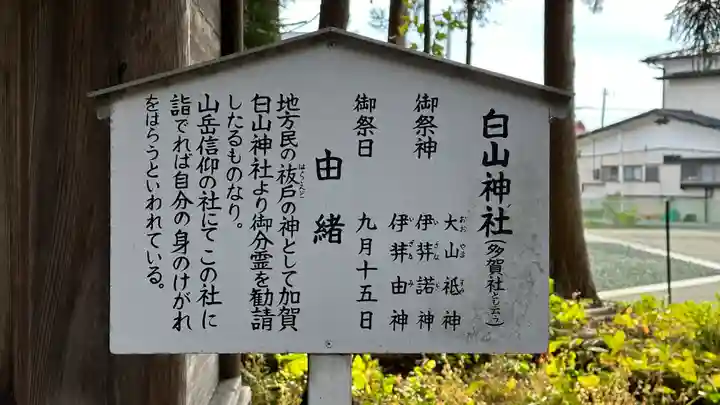 白山神社(多賀社とも云う)
御祭神 大山祗神
伊井諾神
伊井由神
御祭日 九月十五日
由緒
地方民の祓戸の神として加賀
白山神社より御分霊を勧請
したるものなり。
山岳信仰の社にてこの社に
詣でれば自分の身のけがれ
をはらうといわれている。